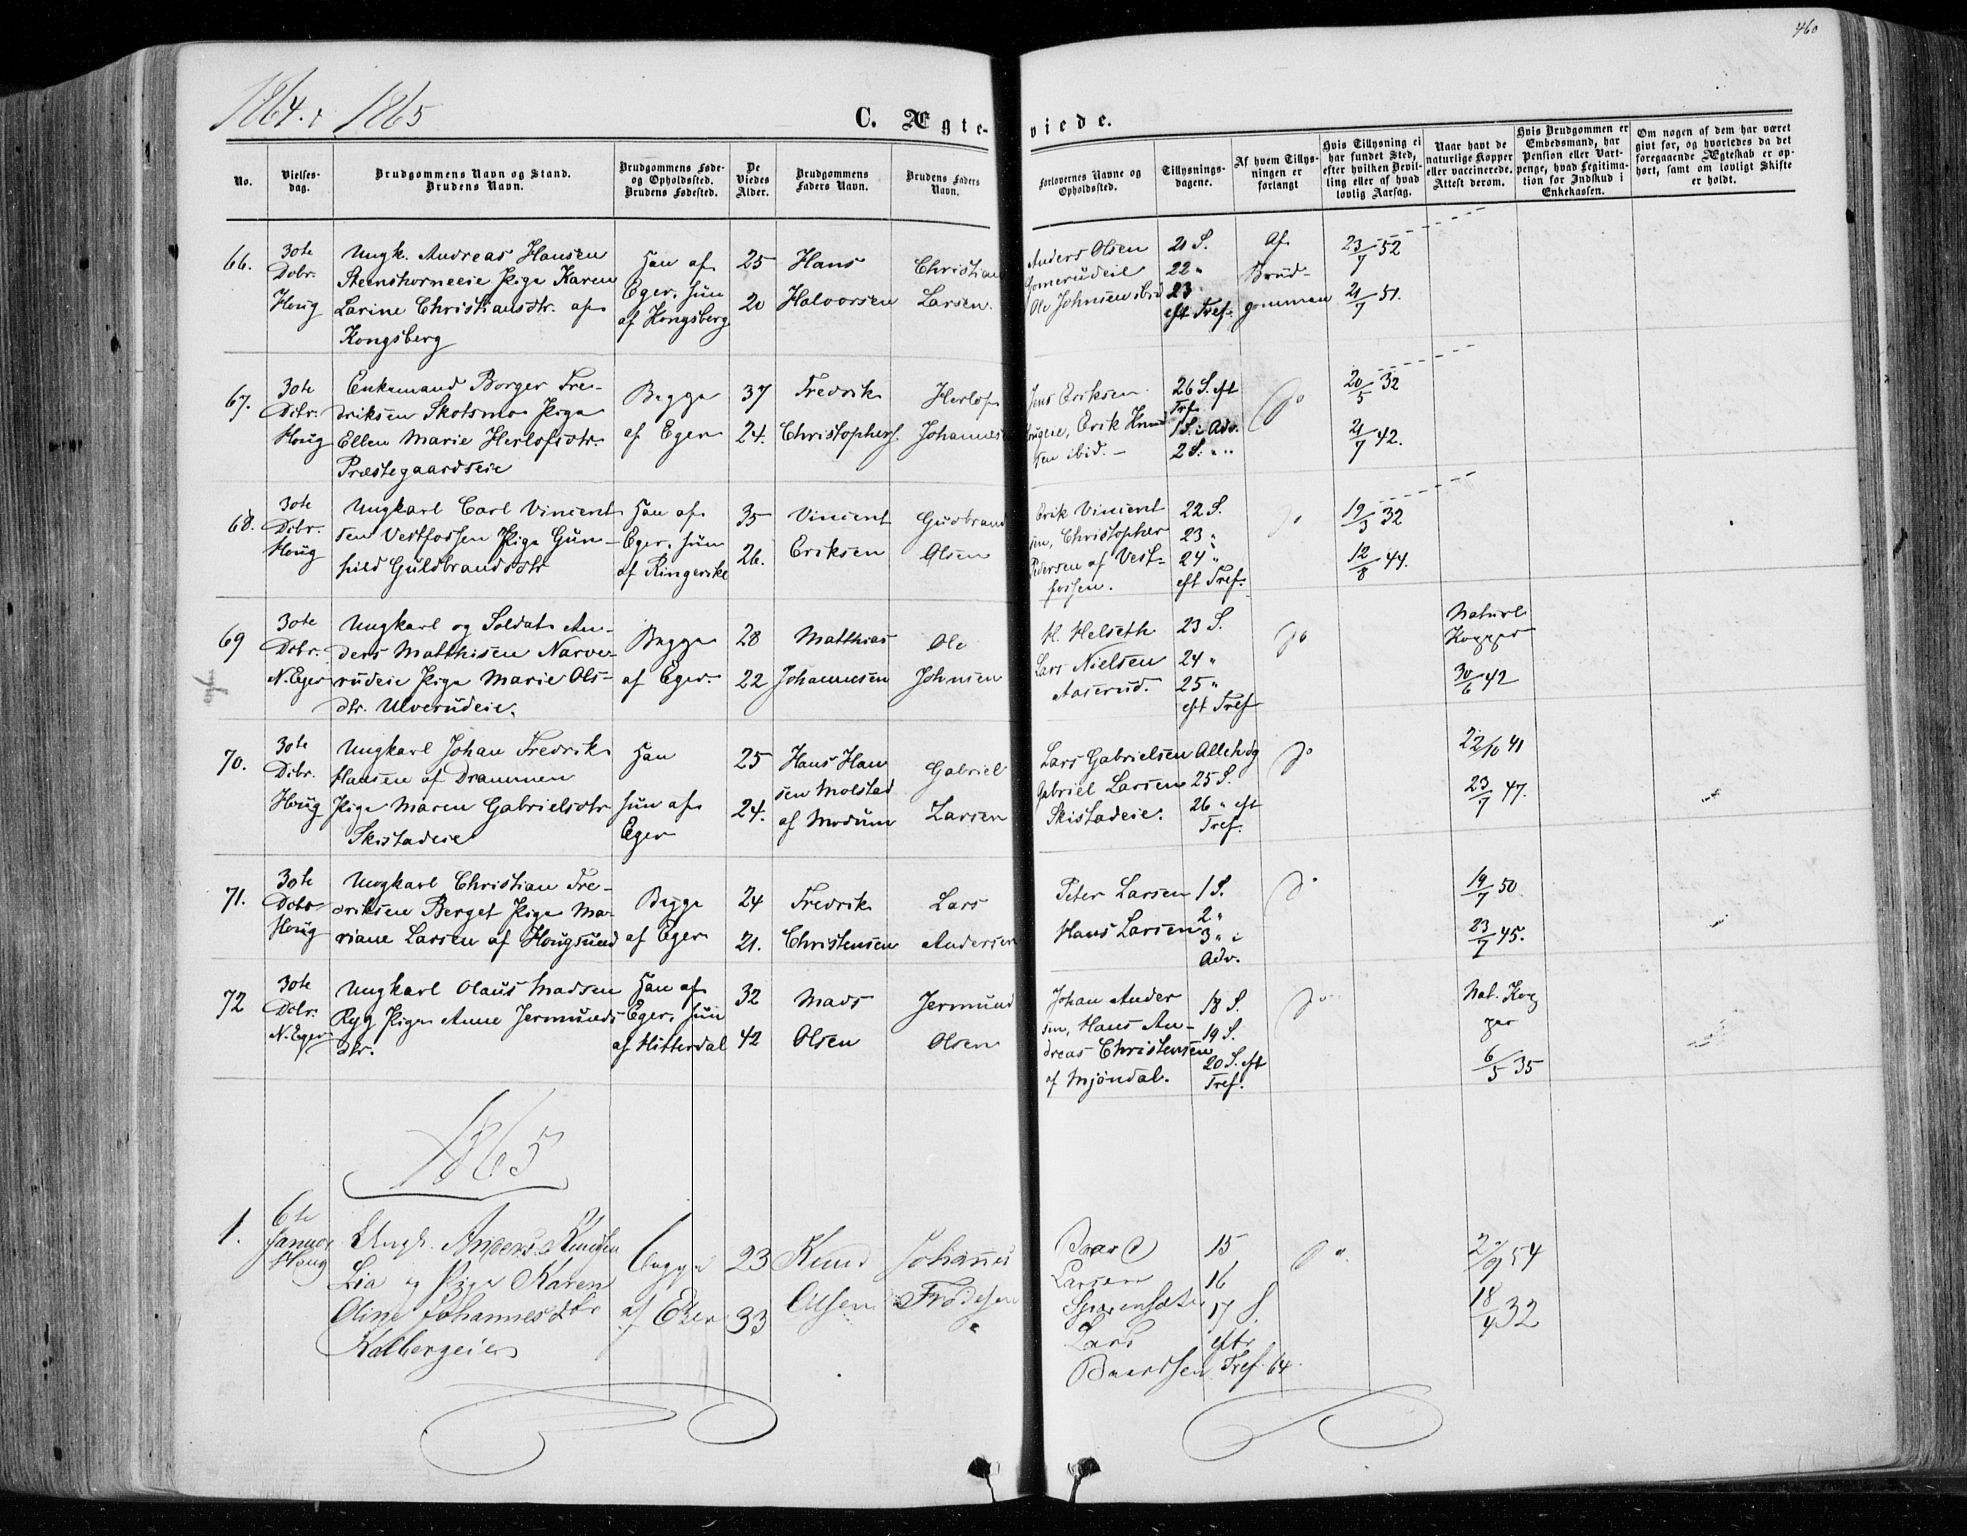 460
1864 & 1865
C. Ægte-
viede.
No.
Vielses-
dag.
Brudgommens Navn og Stand.
Brudens Navn.
Brudgommens Føde-
og Opholdssted.
Brudens Fødested.
De
Viedes
Alder.
Brudgommens
Faders Navn.
Brudens Faders
Navn.
Forlovernes Navne og
Opholdssted.
Tillysnings-
dagene.
Af hvem Tillys-
ningen er
forlangt
Hvis Tillysning ei
har fundet Sted,
efter hvilken Bevil-
ling eller af hvad
lovlig Aarsag.
Naar havt de
naturlige Kopper
eller vaccinerede.
Attest derom.
Hvis Brudgommen er
Embedsmand, har
Pension eller Vart-
penge, hvad Legitima-
tion for Indskud i
Enkekassen.
Om nogen af dem har været
givt før, og hvorledes da det
foregaaende Ægteskab er op-
hørt, samt om lovligt Skifte
er holdt.
66.
30te
Dcbr.
Houg
Ungk. Andreas Hansen
Steenshorneeie Pige Karen
Larine Christiansdtr. af
Kongsberg
Han af
Eger, hun
af Kongsberg
25
20
Hans
Halvorsen
Christian
Larsen.
Anders Olsen
Gomerudeie
Ole Johnsen ibid
21 S.
22 "
23
eft Tref.
Af
Brud-
gommen
23/7 52
21/7 51.
67.
30te
Dcbr.
Houg
Enkemand Borger Fre-
driksen Skotsmo Pige
Ellen Marie Herlofsdtr.
Præstegaardseie
Begge
af Eger
37
24.
Fredrik
Christophers.
Herlof
Johannesen
Jens Eriksen
Erik Knud
sen ibid. -
26 S. eft
Trf.
1 S. i Adv.
2 S. " "
do
20/5 32
21/7 42.
68.
30te
Dcbr.
Houg
Ungkarl Carl Vincent
sen Vestfossen Pige Gun-
hild Guldbrandsdtr
Han af
Eger, hun
af Ringerike
35
26.
Vincent
Eriksen
Gudbrand
Olsen
Erik Vincent
sen, Christopher
Pedersen af Vest-
fossen.
22 S.
23 "
24 "
eft Tref.
do
19/3 32
12/8 44.
69
30te
Dcbr.
N. Eger
Ungkarl og Soldat An-
ders Matthisen Narve-
rudeie Pige Marie Ols-
dtr. Ulverudeie.
Begge
af Eger.
28
22
Matthias
Johannesen
Ole
Johnsen
H. Helseth
Lars Nielsen
Aaserud.
23 S.
24 "
25 "
eft Tref
do
Naturl
Kopper
30/6 42
70.
30te
Dcbr.
Houg
Ungkarl Johan Fredrik
Hansen af Drammen
Pige Maren Gabrielsdtr
Skistadeie
Han
hun af
Eger
25
24.
Hans Han
sen Molstad
af Modum
Gabriel
Larsen
Lars Gabrielsen
Gabriel Larsen
Skistadeie.
Allehdg
25 S.
26 " eft
Tref.
do
22/10 41
23/7 47.
71.
30te
Dcbr
Houg
Ungkarl Christian Fre-
driksen Berget Pige Ma-
riane Larsen af Hougsund
Begge
af Eger
24
21.
Fredrik
Christensen
Lars
Andersen
Peter Larsen
Hans Larsen
1 S.
2 "
3 " i
Adv.
do
19/7 50
23/7 45.
72
30te
Dcbr.
N. Eger
Ungkarl Olaus Madsen
Ryg Pige Anne Jermunds
dtr.
Han af
Eger, hun
af Hitterdal
32
42
Mads
Olsen
Jermund
Olsen
Johan Ander
sen, Hans An-
dreas Christensen
af Mjøndal.
18 S.
19 S.
20 S. eft
Tref.
do
Nat. Kop
per
6/5 35
1865
1.
6te
Januar
Houg
Ungk. Anders Knudsen
Lia og Pige Karen
Oline Johannesdtr
Kolbergeie
Begge
af Eger
23
33
Knud
Olsen
Johannes
Frodesen
Baard
Larsen
Lars
Baardsen
15
16
17 S.
eftr
Tref. 64.
do
2/9 54
18/4 32